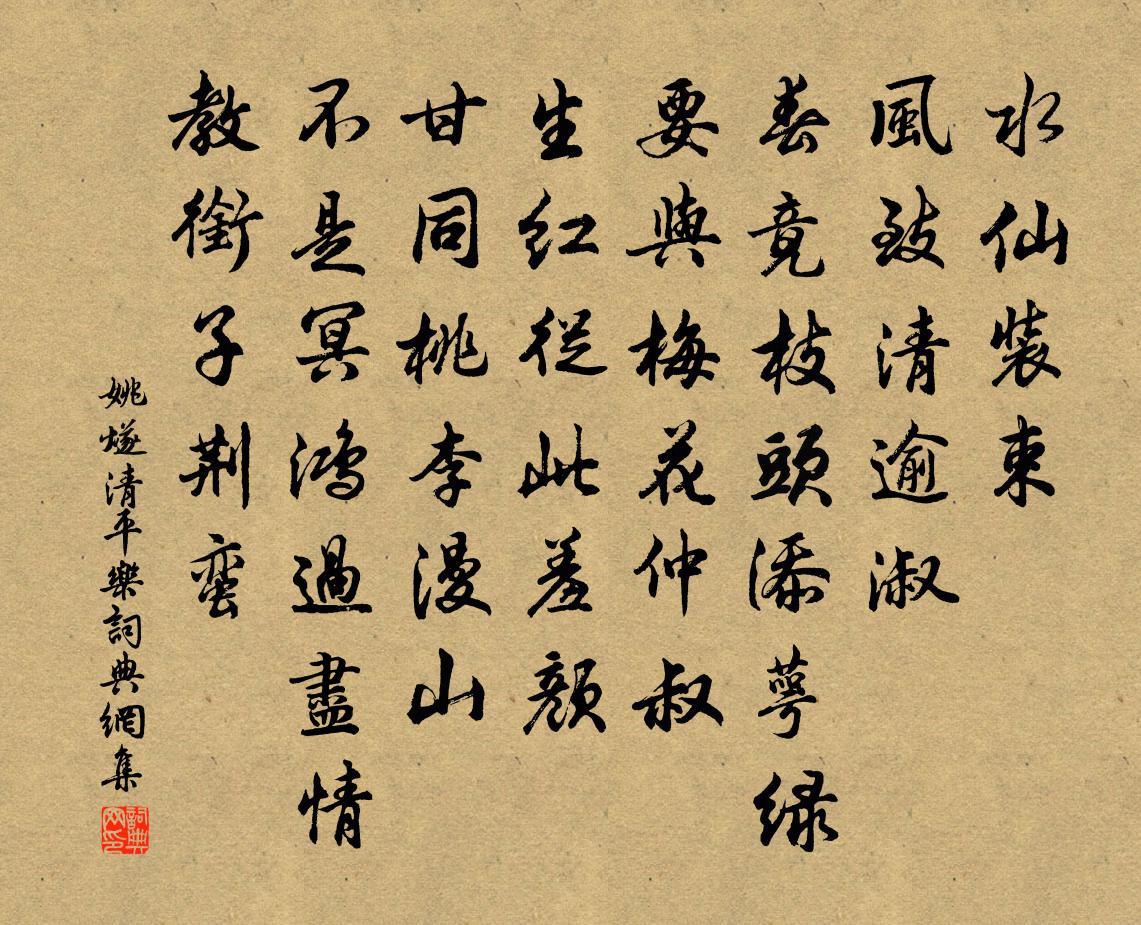 水仙裝束
風致清逾淑
春竟枝頭添萼綠
要與梅花仲叔
生紅從此羞顏
甘同桃李漫山
不是冥鴻過盡情
教銜子荊蠻
姚燧清平樂詞典網集
詞典网印